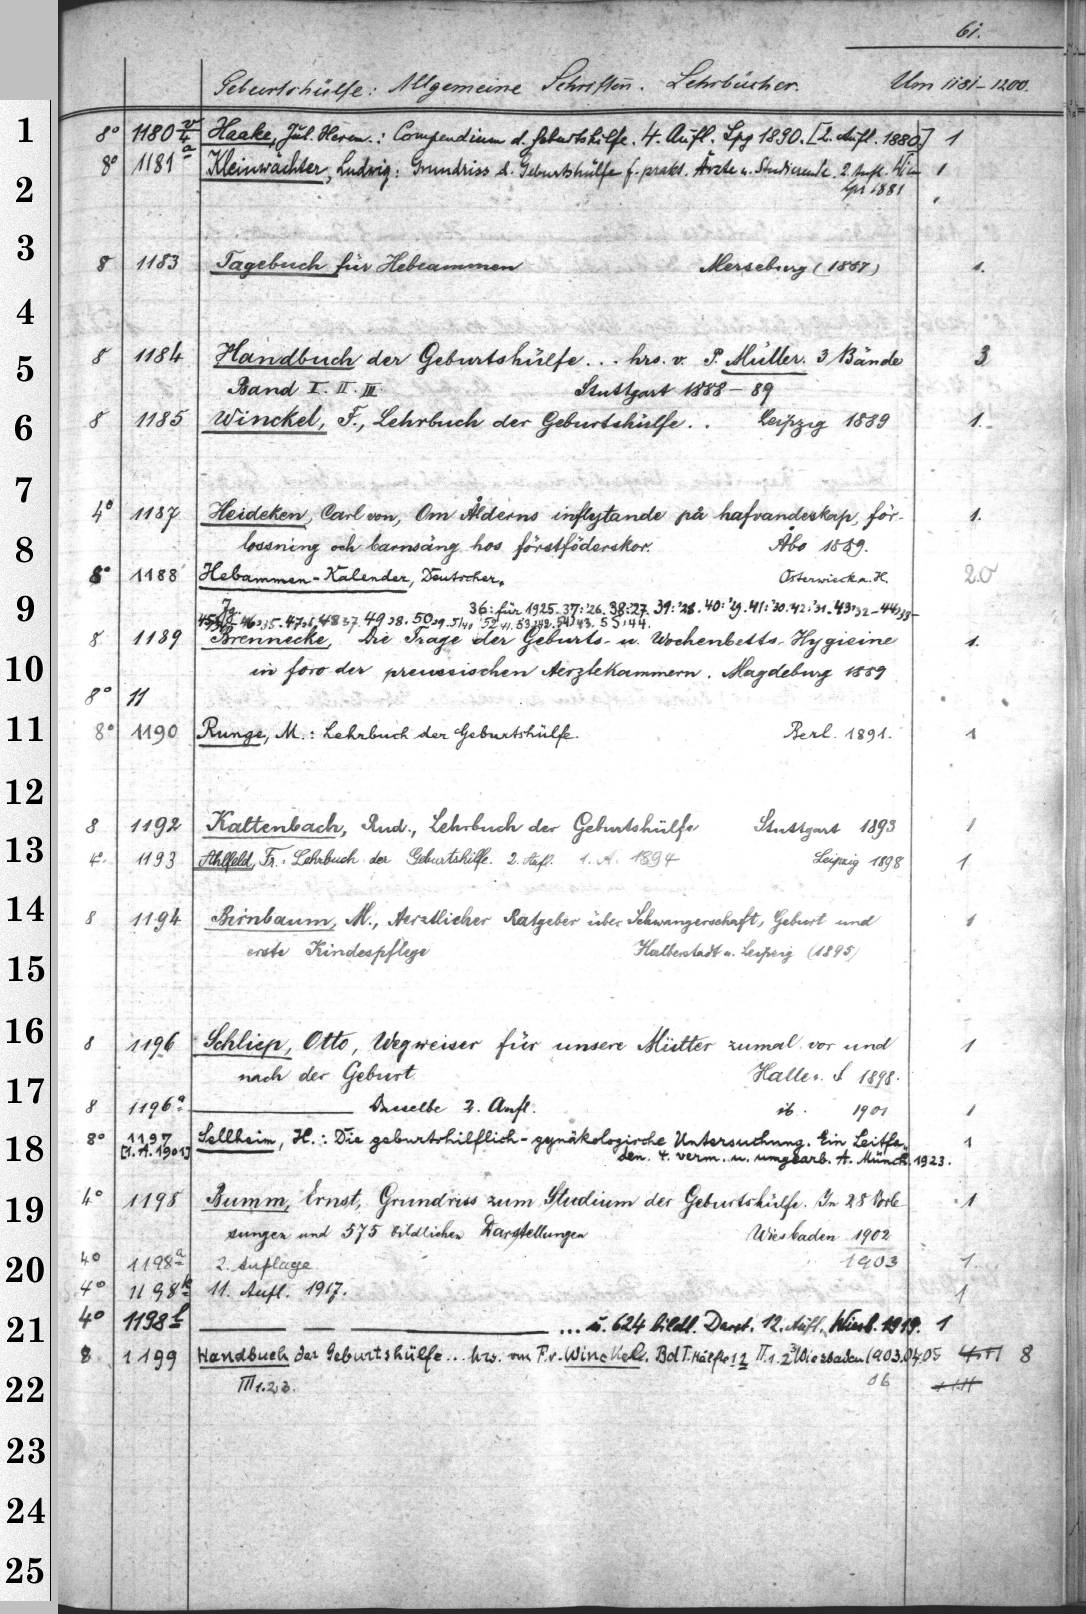 61.
Geburtshülfe: Allgemeine Schriften. Lehrbücher. Um 1181–1200.
1
8° 1180 Haake, Jul. Herm.: Compendium d. Geburtshilfe. 4. Aufl. Lpg 1890. [2. Aufl. 1880.] 1
8° 1181 a Kleinwächter, Ludwig: Grundriss d. Geburtshülfe f. prakt. Ärzte u. Studierende. 2. Aufl. Wien 1
2
Lpz 1881
3
8 1183 Tagebuch für Hebeammen Merseburg (1887) 1.
4
8 1184 Handbuch der Geburtshülfe... hrs. v. P. Müller. 3 Bände 3
5
Band I. II. III. Stuttgart 1888–89
6
8 1185 Winckel, F., Lehrbuch der Geburtshülfe.. Leipzig 1889 1.
7
4° 1187 Heideken, Carl von, Om Ålderns inflytande på hafvandeskap, för- 1.
8
lossning och barnsäng hos förstföderskor. Åbo 1889.
8° 1188 Hebammen-Kalender, Deutscher. Osterwieck a. H. 20
9
Jg. 36: für 1925. 37:'26. 38:'27. 39:'28. 40:'29. 41:'30. 42:'31. 43:'32–44:'33–
8 1189 Brennecke, Die Frage der Geburts- u. Wochenbetts-Hygieine 1.
10
in foro der preussischen Aerztekammern. Magdeburg 1889
8° 11
11
8° 1190 Runge, M.: Lehrbuch der Geburtshülfe. Berl. 1891. 1
12
8 1192 Kaltenbach, Rud., Lehrbuch der Geburtshülfe Stuttgart 1893 1
13
4° 1193 Ahlfeld, Fr.: Lehrbuch der Geburtshilfe. 2. Aufl. 1. A. 1894 Leipzig 1898 1
14
8 1194 Birnbaum, M., Aerztlicher Ratgeber über Schwangerschaft, Geburt und 1
15
erste Kindespflege Halberstadt u. Leipzig (1895)
16
8 1196 Schliep, Otto, Wegweiser für unsere Mütter zumal vor und 1
17
nach der Geburt Halle a. S 1898.
8 1196 a Dasselbe 2. Aufl. ib. 1901 1
18
8° 1197 Sellheim, H.: Die geburtshilflich-gynäkologische Untersuchung. Ein Leitfa- 1
[1. A. 1901] den. 4. verm. u. umgearb. A. Münch. 1923.
19
4° 1198 Bumm, Ernst, Grundriss zum Studium der Geburtshülfe. In 28 Vorle- 1
sungen und 575 bildlichen Darstellungen Wiesbaden 1902
20
4° 1198 a 2. Auflage 1903 1.
4° 1198 k 11. Aufl. 1917. 1
21
4° 1198 l ... u. 624 bildl. Darst. 12. Aufl. Wiesb. 1919. 1
8 1199 Handbuch der Geburtshülfe... hrs. von F. v. Winckel. Bd I. Hälfte 1 2 II. 1. 2. 3 Wiesbaden 1903.04.05 8
22
III 1. 2. 3. 06
23
24
25